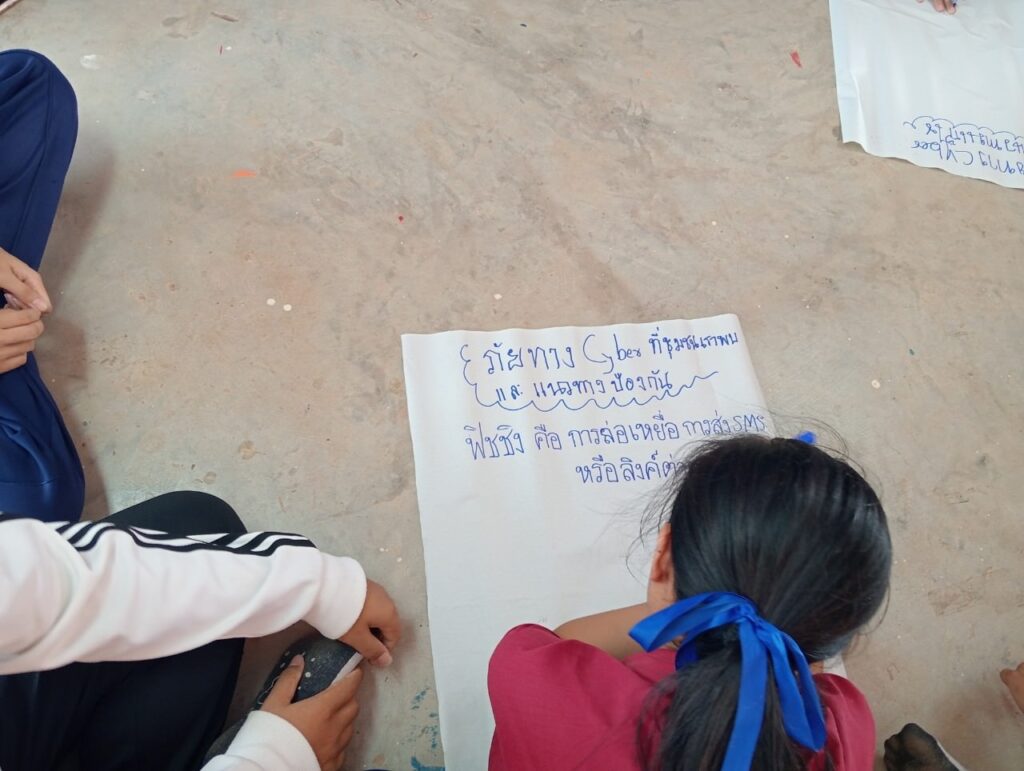 ภัยทาง Cyber ที่ชุมชนเราพบ
และ แนวทาง ป้องกัน
ฟิชชิง คือ การล่อเหยื่อ การส่ง SMS
หรือลิงค์ต่
Cyber